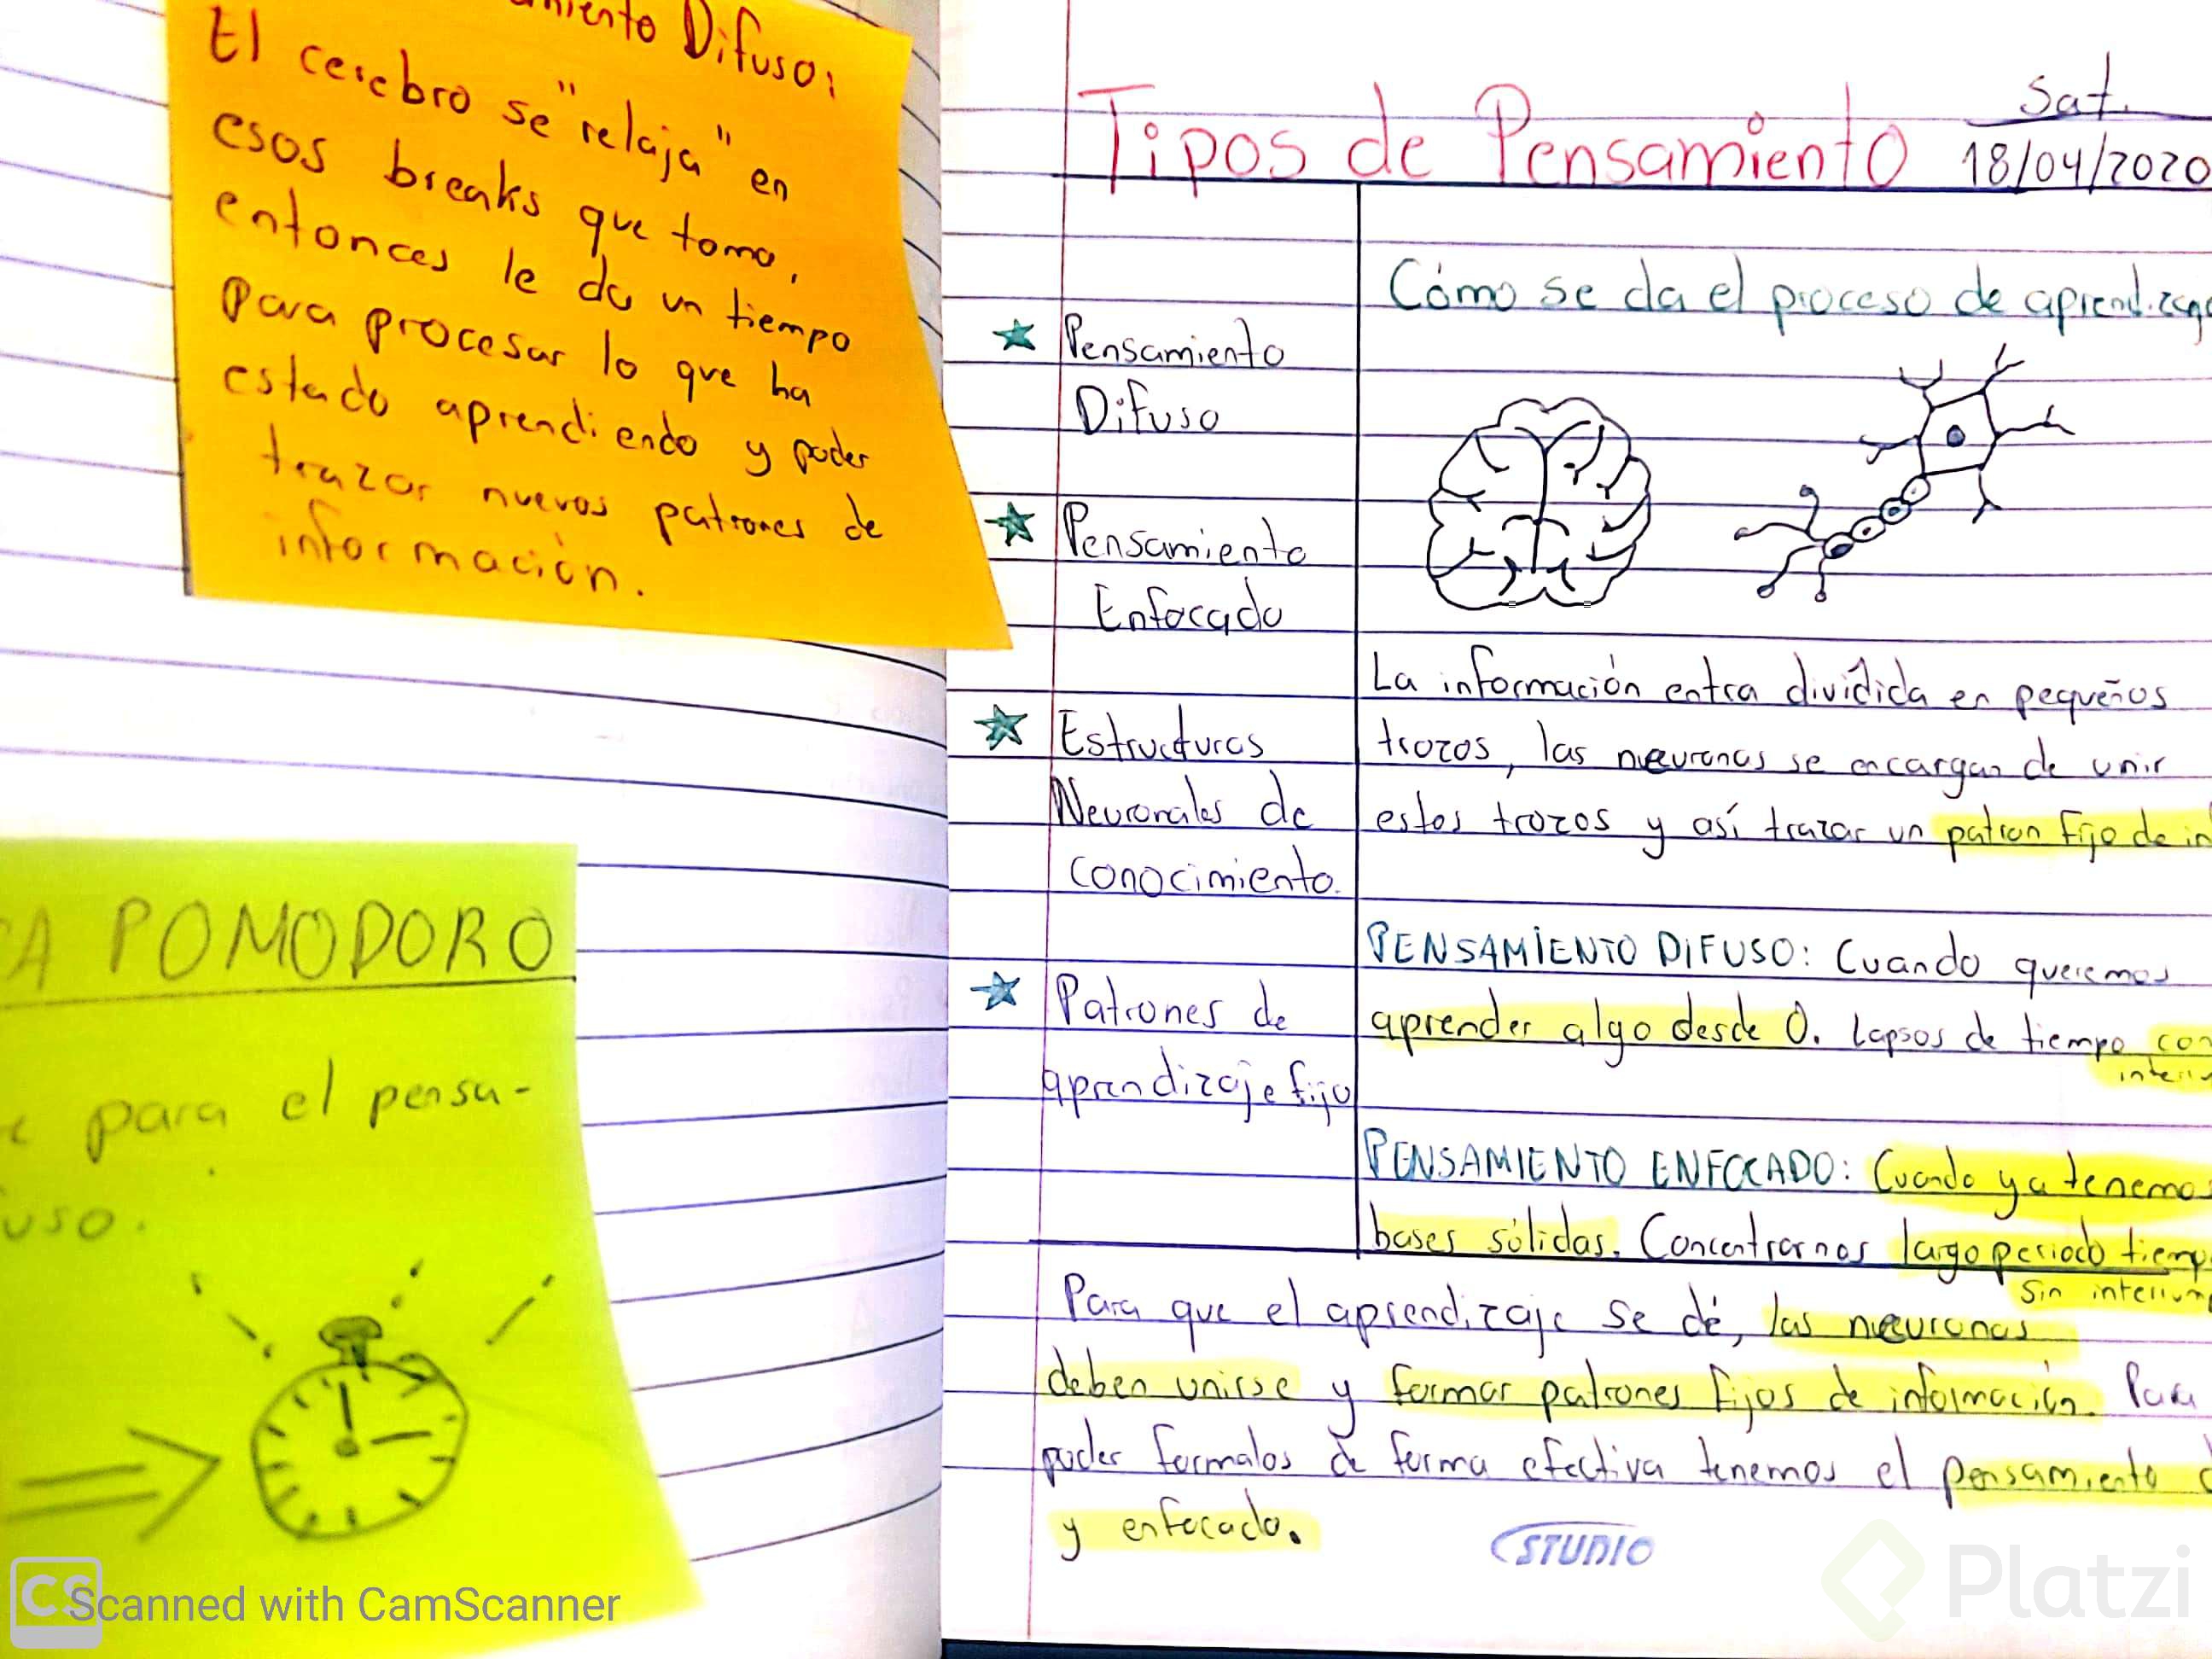 Difuso:
El cerebro se "relaja" en
esos breaks que tomo,
entonces le da un tiempo
para procesar lo que ha
estado aprendiendo y poder
trazar nuevos patrones de
información.
POMODORO
para el pensa-
uso.
Scanned with CamScanner
CS
Tipos de Pensamiento
Sat.
18/04/2020
★ Pensamiento
Difuso
★ Pensamiento
Enfocado
★ Estructuras
Neuronales de
conocimiento.
★ Patrones de
aprendizaje fijo
Cómo se da el proceso de aprendizaje
La información entra dividida en pequeños
trozos, las neuronas se encargan de unir
estos trozos y así trazar un patron fijo de in
PENSAMIENTO DIFUSO: Cuando queremos
aprender algo desde 0. Lapsos de tiempo con
interru
PENSAMIENTO ENFOCADO: Cuando ya tenemos
bases sólidas. Concentrarnos largo periodo tiemp
Sin interrum
Para que el aprendizaje se dé, las neuronas
deben unirse y formar patrones fijos de información. Para
poder formalos de forma efectiva tenemos el pensamiento d
y enfocado.
STUDIO
Platzi